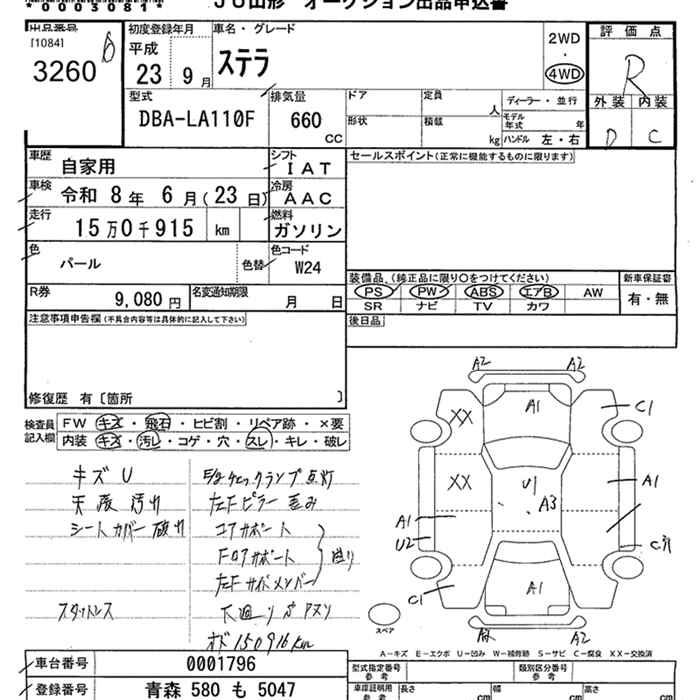 *0005081*
JU山形 オークション出品申込書
出品番号
[1084]
3260
初度登録年月
平成
23 9月
車名・グレード
ステラ
2WD
・
4WD
評価点
R
外装 内装
D C
型式
DBA-LA110F
排気量
660
cc
ドア
定員
人
形状
積載
kg
ディーラー・並行
モデル年式
年
ハンドル 左・右
車歴
自家用
シフト
IAT
車検
令和 8年 6月(23日)
冷房
AAC
走行
15万0千915 km
燃料
ガソリン
色
パール
色替
色コード
W24
R券
9,080円
名変通知期限
月 日
セールスポイント(正常に機能するものに限ります)
装備品(純正品に限り○をつけてください)
新車保証書
PS PW ABS エアB AW
有・無
SR ナビ TV カワ
後日品
注意事項申告欄(不具合内容等は具体的に記入して下さい)
修復歴 有〔箇所 〕
検査員
記入欄
FW キズ・飛石・ヒビ割・リペア跡・×要
内装 キズ・汚レ・コゲ・穴・スレ・キレ・破レ
キズ U
天張汚れ
シートカバー破れ
スタットレス
ランプ点灯
左Fピラー歪み
コアサポート
Fロアサポート
左Fサイドメンバー
下廻りサビ
オド150916km
A2 A2
A1
XX
C1
XX
U1
A3
A1
A1
U2
C1
A1
スペア
A-キズ E-エクボ U-凹み W-補修跡 S-サビ C-腐食 XX-交換済
車台番号
0001796
登録番号
青森 580 も 5047
型式指定番号
参考
類別区分番号
参考
車庫証明用
参考
長さ
cm
幅
cm
高さ
cm